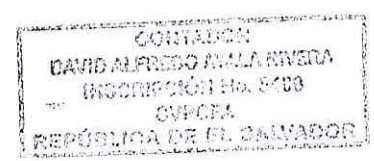 CONTADOR
DAVID ALFREDO AYALA RIVERA
INSCRIPCIÓN No.
CVPCPA
REPÚBLICA DE EL SALVADOR